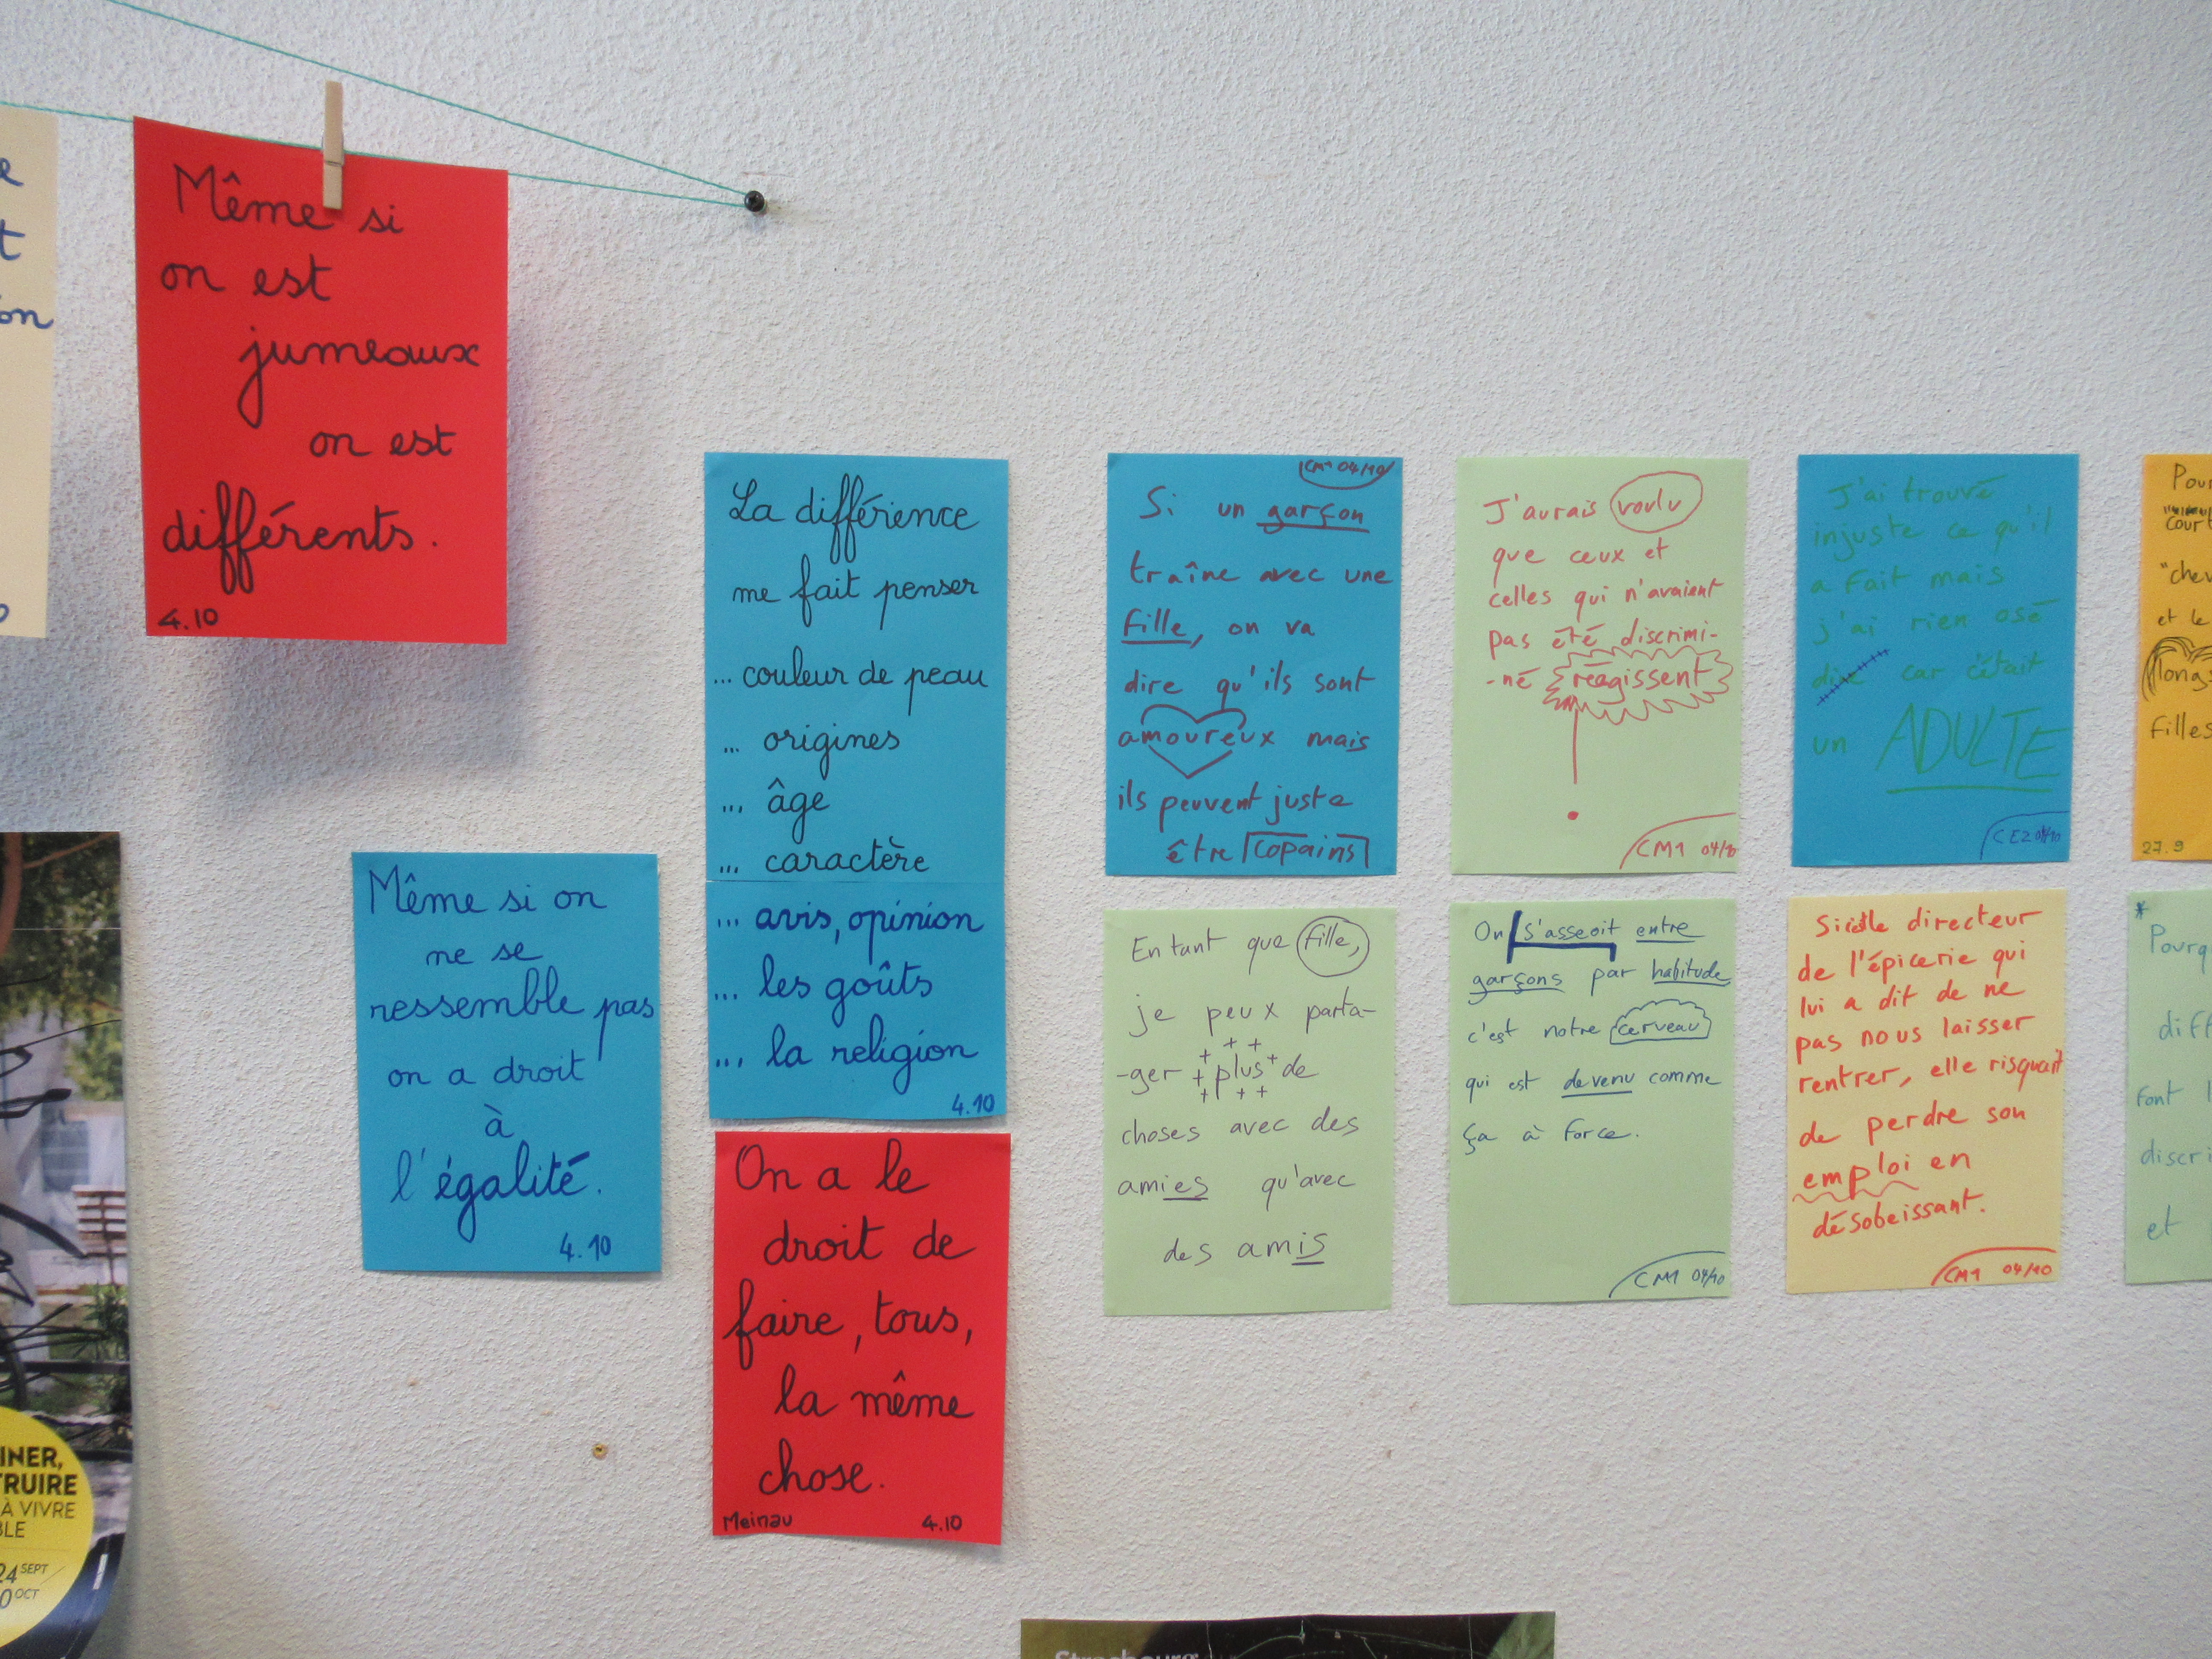 Même si
on est
jumeaux
on est
différents.
4.10
Même si on
ne se
ressemble pas
on a droit
à
l'égalité.
4.10
La différience
me fait penser
... couleur de peau
... origines
... âge
... caractère
... avis, opinion
... les goûts
... la religion
4.10
On a le
droit de
faire, tous,
la même
chose.
Meinau 4.10
CM1 04/10
Si un garçon
traîne avec une
fille, on va
dire qu'ils sont
amoureux mais
ils peuvent juste
être copains
J'aurais voulu
que ceux et
celles qui n'avaient
pas été discrimi-
-né réagissent
CM1 04/10
J'ai trouvé
injuste ce qu'il
a fait mais
j'ai rien osé
dire car c'était
un ADULTE
CE2 04/10
Pour
"court
"chev
et le
longs
filles
27.9
En tant que fille,
je peux parta-
-ger plus de
choses avec des
amies qu'avec
des amis
On s'asseoit entre
garçons par habitude
c'est notre cerveau
qui est devenu comme
ça à force.
CM1 04/10
Si c'est le directeur
de l'épicerie qui
lui a dit de ne
pas nous laisser
rentrer, elle risquait
de perdre son
emploi en
désobeissant.
CM1 04/10
*
Pourq
diff
font l
discri
et
e
t
on
INER,
TRUIRE
À VIVRE
BLE
24 SEPT
0 OCT
Strasbourg